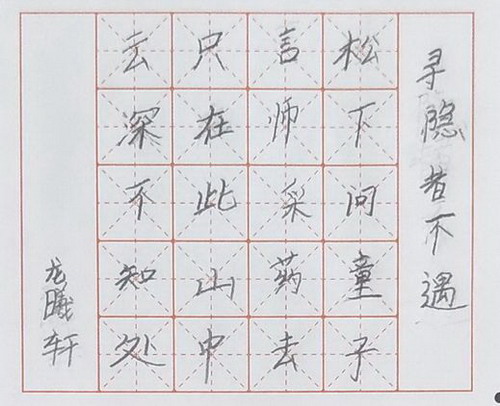 寻隐者不遇
松下问童子
言师采药去
只在此山中
云深不知处
龙曦轩